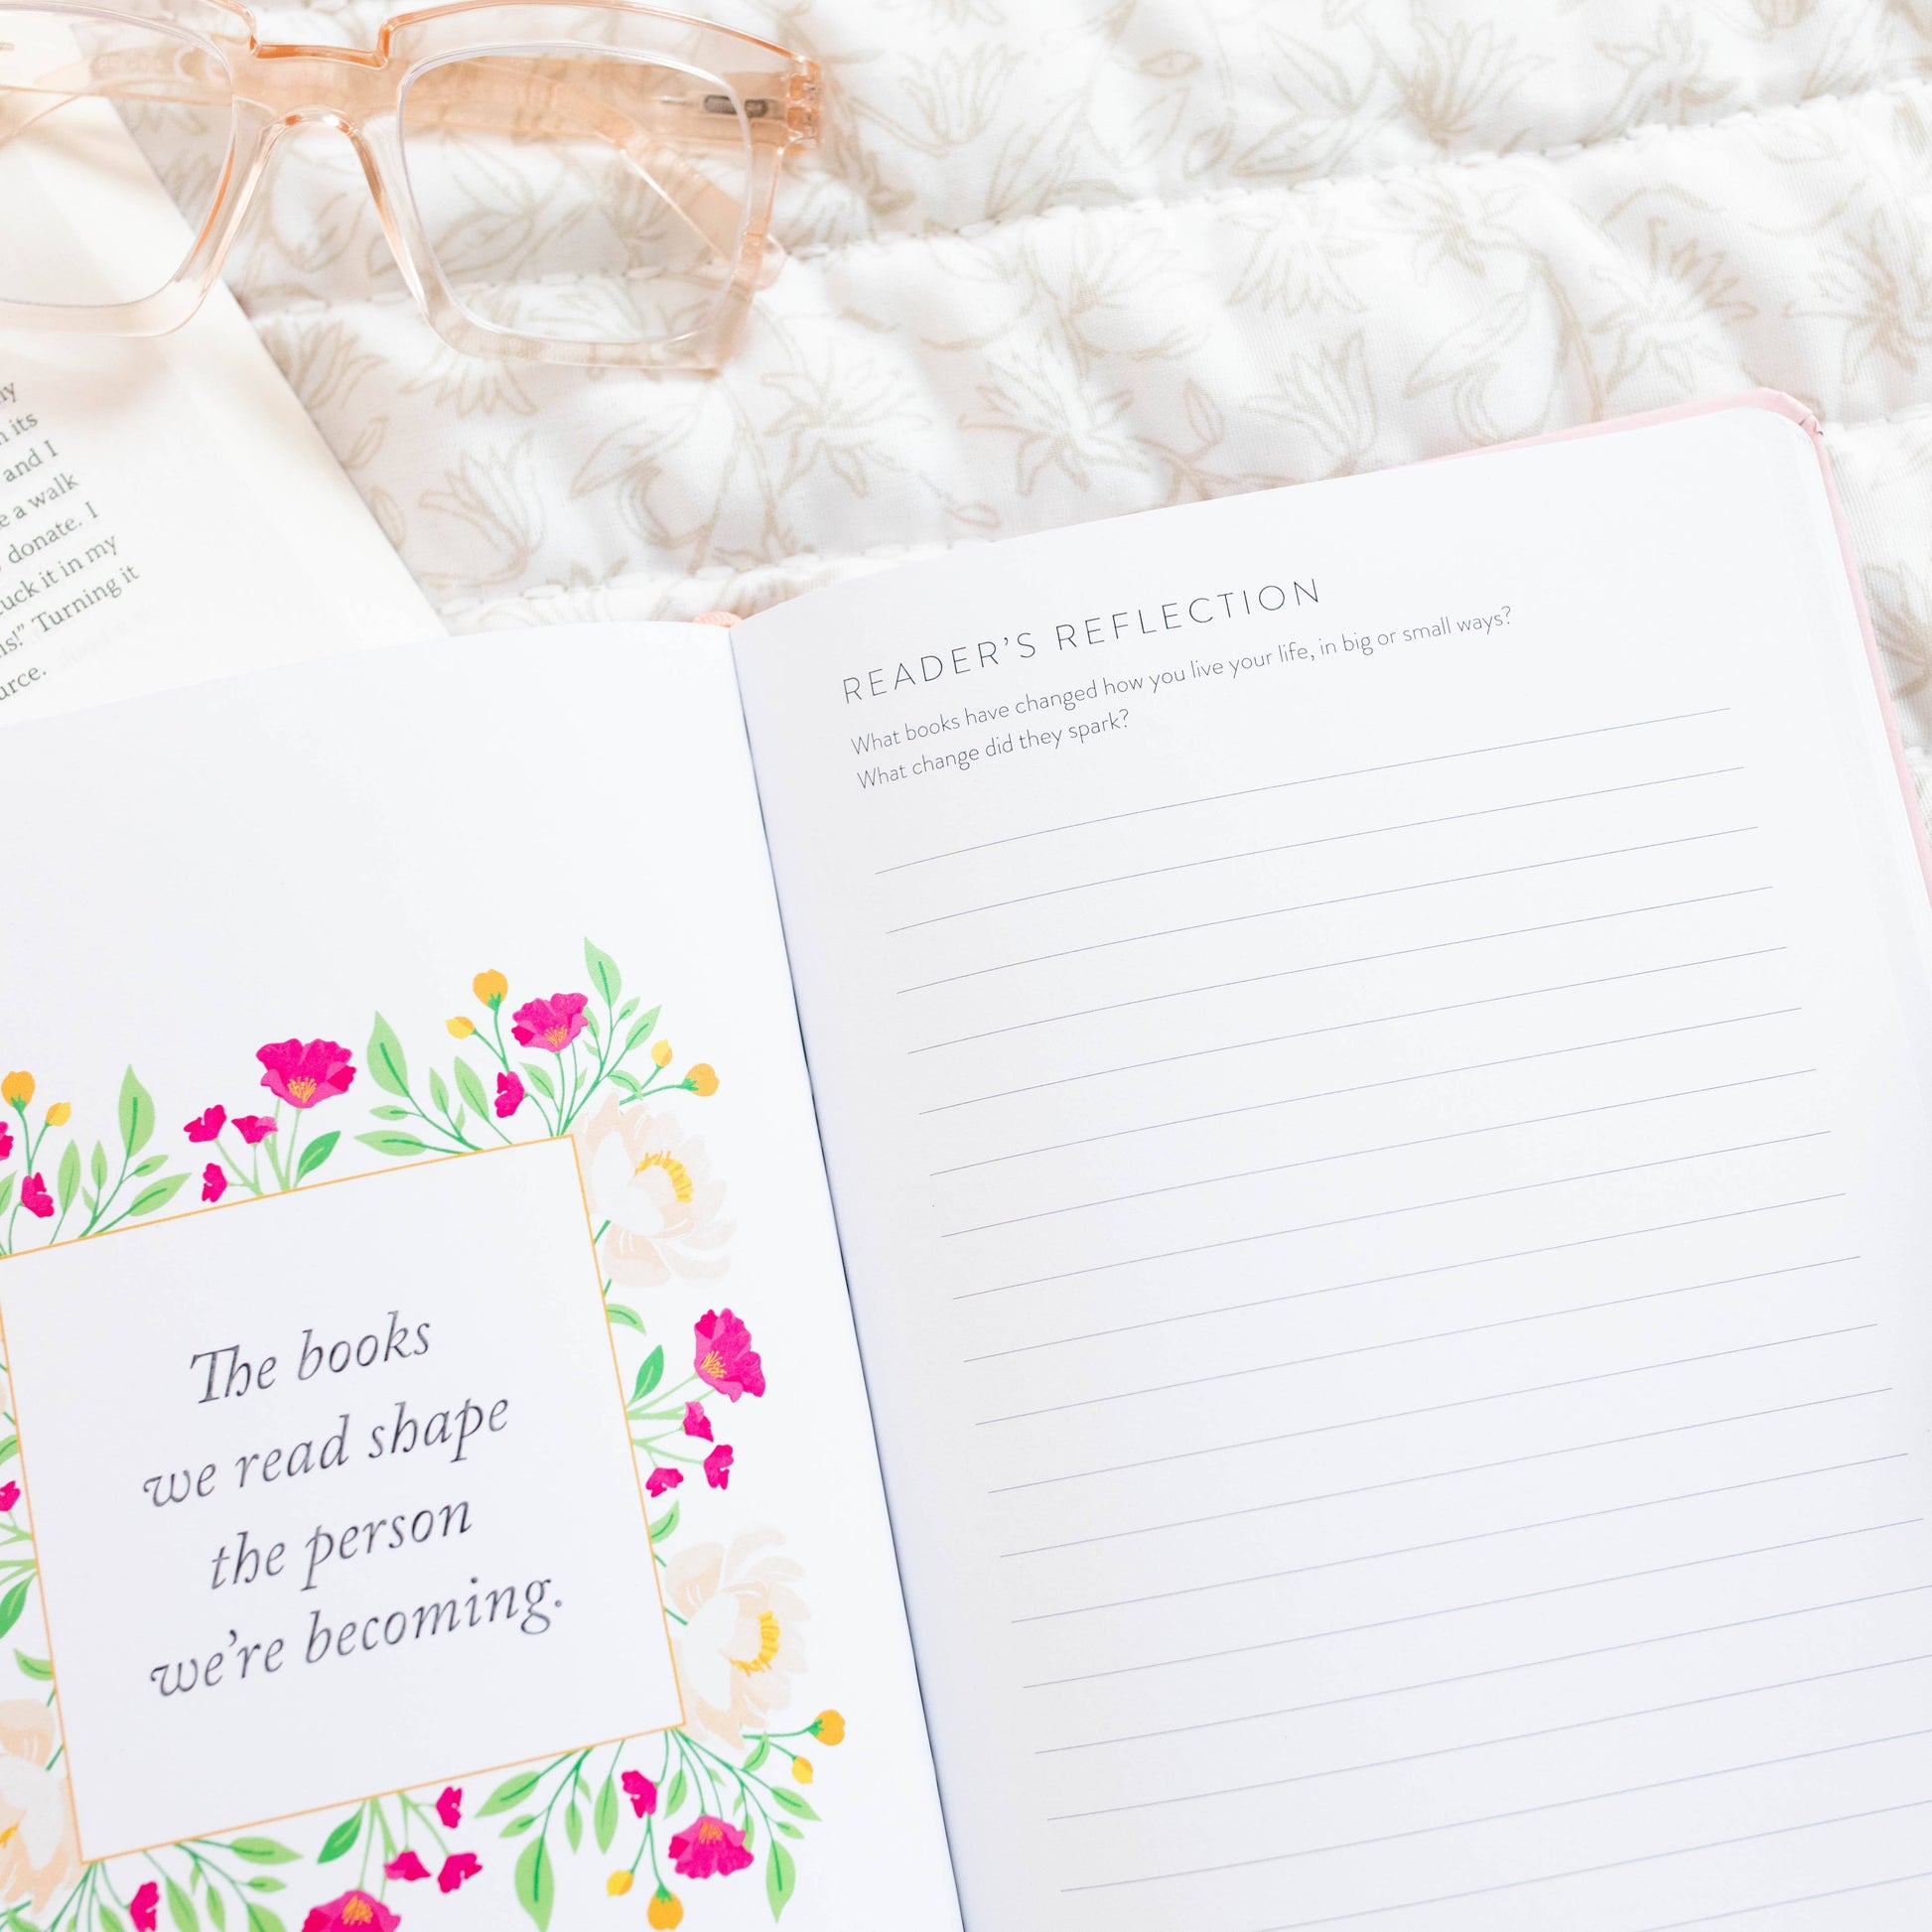 its
and I
a walk
donate. I
it in my
Turning it
READER'S REFLECTION
What books have changed how you live your life, in big or small ways?
What change did they spark?
The books
we read shape
the person
we're becoming.